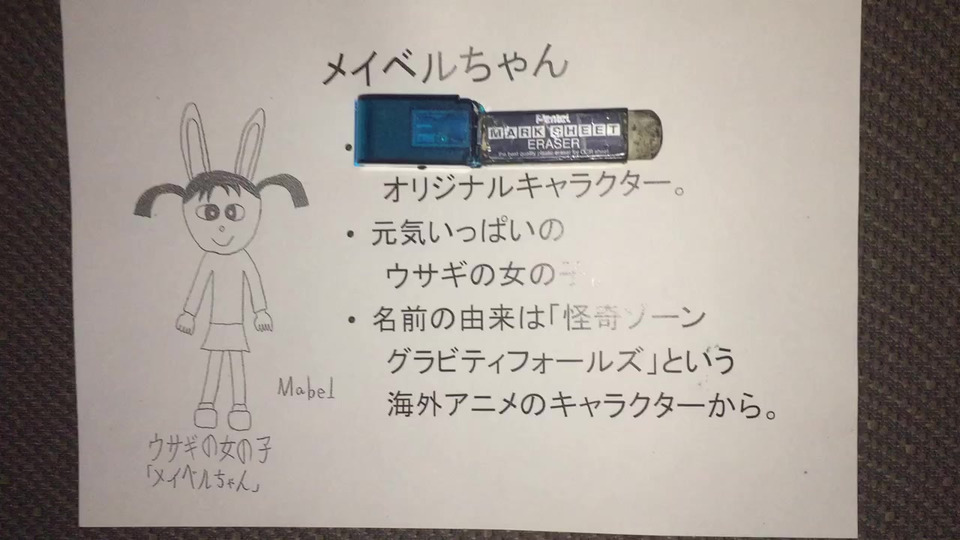 メイベルちゃん
Pentel
MARK SHEET
ERASER
the best quality plastic eraser for OCR sheet
・
オリジナルキャラクター。
・元気いっぱいの
ウサギの女の子
・名前の由来は「怪奇ゾーン
グラビティフォールズ」という
海外アニメのキャラクターから。
Mabel
ウサギの女の子
「メイベルちゃん」